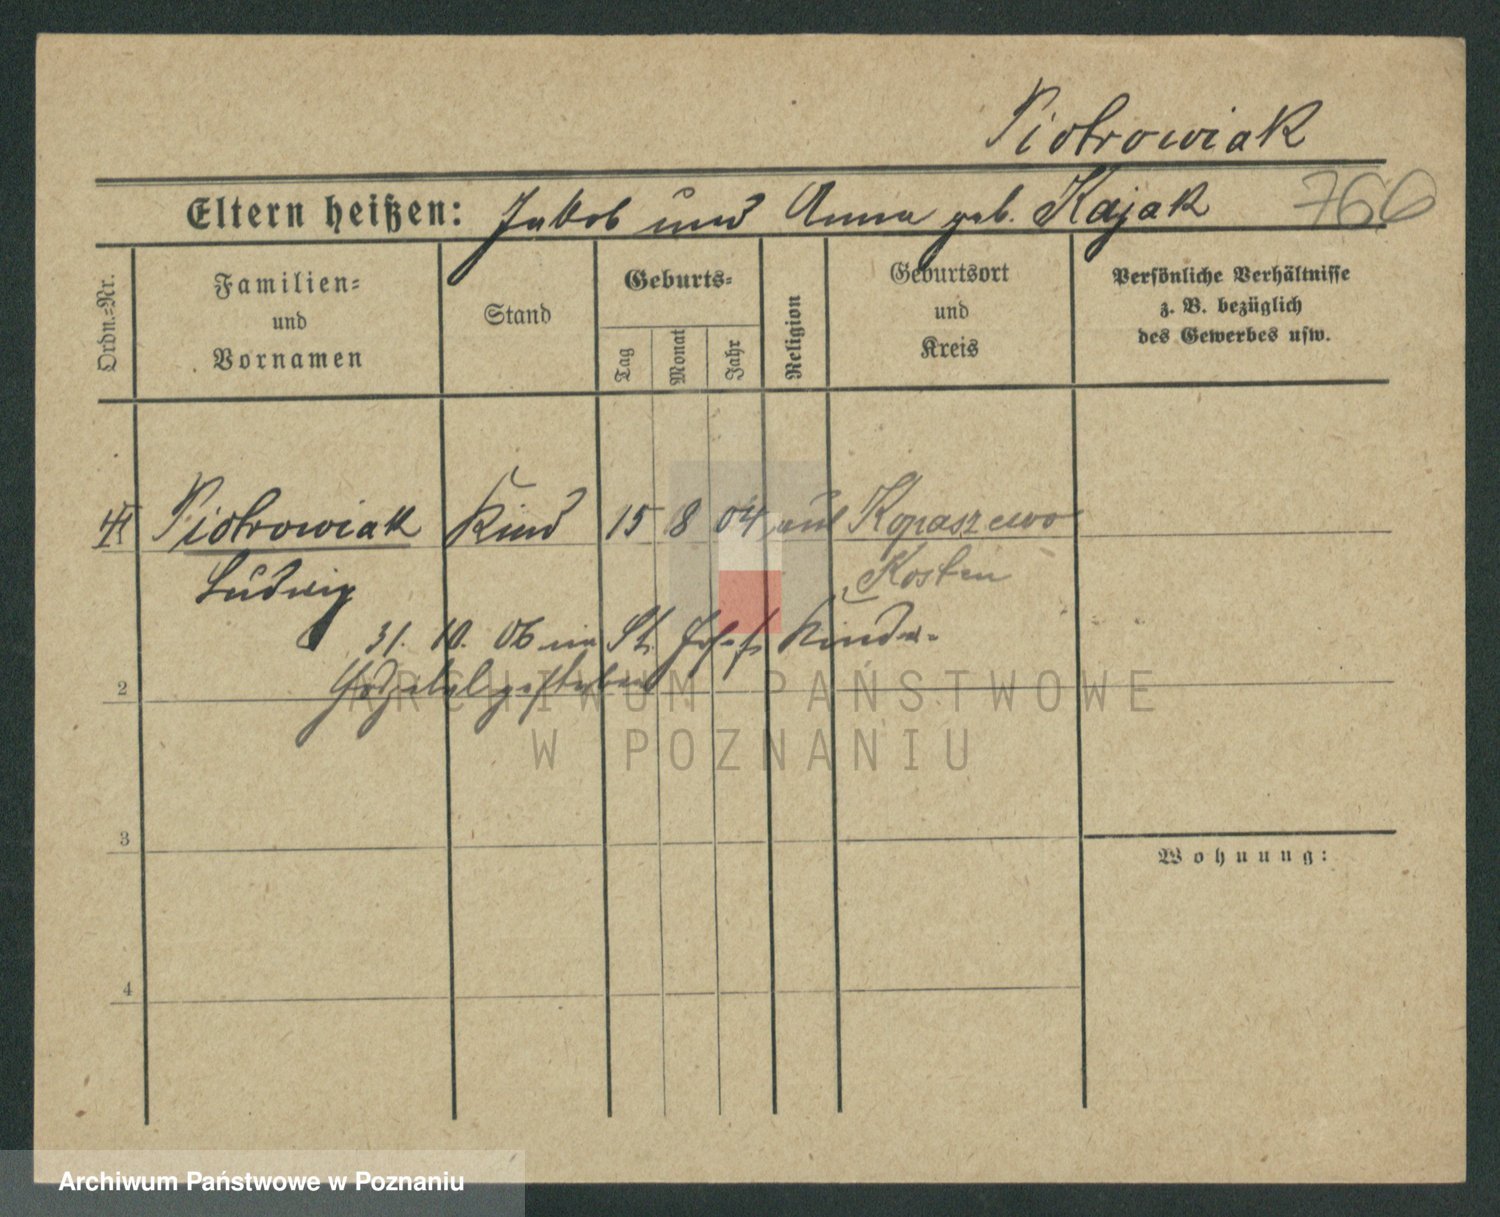 Piotrowiak
Eltern heißen: Jakob und Anna geb. Kajak 766
Ordn.-Nr.
Familien-
und
Vornamen
Stand
Geburts-
Tag
Monat
Jahr
Religion
Geburtsort
und
Kreis
Persönliche Verhältnisse
z. B. bezüglich
des Gewerbes usw.
Piotrowiak Kind 15 8 04 Kopaszewo
Ludwig Kosten
31. 10. 06 im St. Josefs Kinder-
Hospital gestorben
2
3
4
Wohnung:
ARCHIWUM PAŃSTWOWE
W POZNANIU
Archiwum Państwowe w Poznaniu